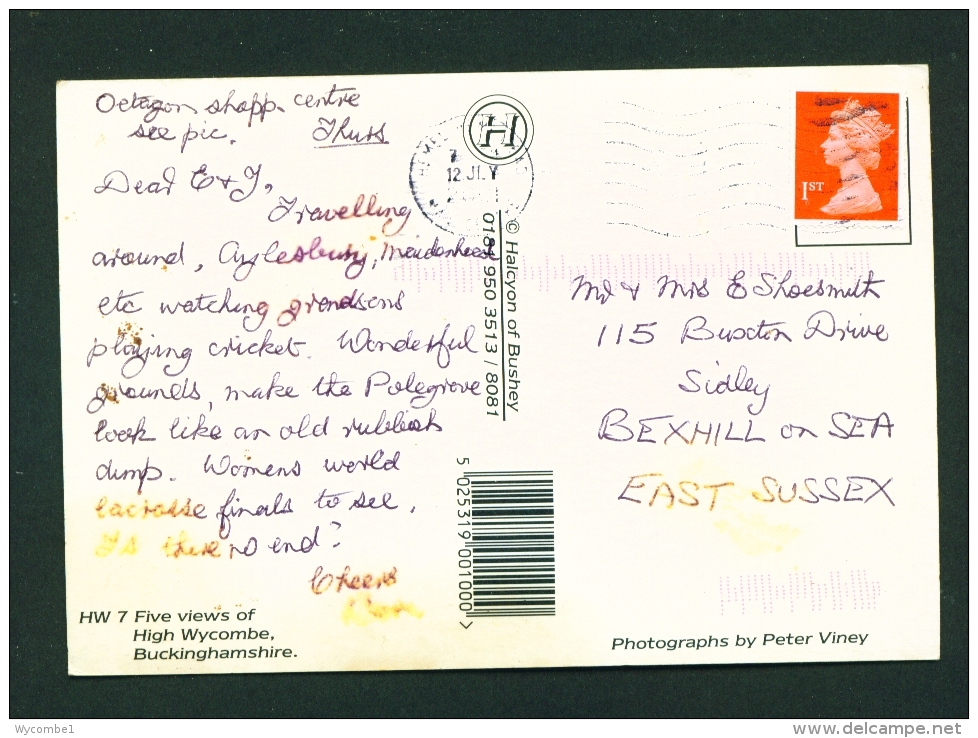 Octagon shopp. centre
see pic. Thurs
Dear E & J,
Travelling
around, Aylesbury, Maidenhead
etc watching grandsons
playing cricket. Wonderful
grounds, make the Polegrove
look like an old rubbish
dump. Womens world
lacrosse finals to see.
Is there no end?
Cheers
HW 7 Five views of
High Wycombe,
Buckinghamshire.
H
12 JLY
© Halcyon of Bushey
950 3513 / 8081
5 025319 001000 >
1ST
Mr & Mrs E Shoesmith
115 Buxton Drive
Sidley
BEXHILL on SEA
EAST SUSSEX
Photographs by Peter Viney
Wycombe1
www.delcampe.net